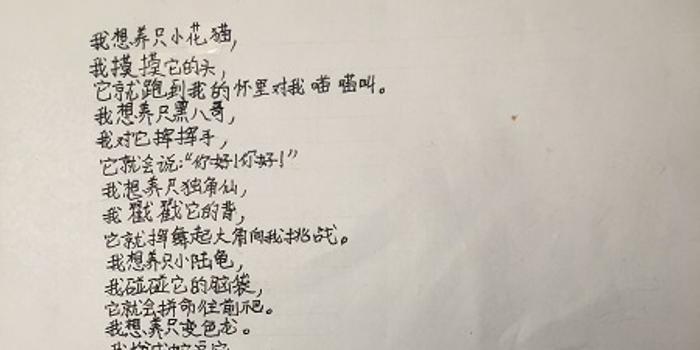 我想养只小花猫，
我摸摸它的头，
它就跑到我的怀里对我喵喵叫。
我想养只黑八哥，
我对它挥挥手，
它就会说：“你好！你好！”
我想养只独角仙，
我戳戳它的背，
它就挥舞起大角向我挑战。
我想养只小陆龟，
我碰碰它的脑袋，
它就会拼命往前爬。
我想养只变色龙。